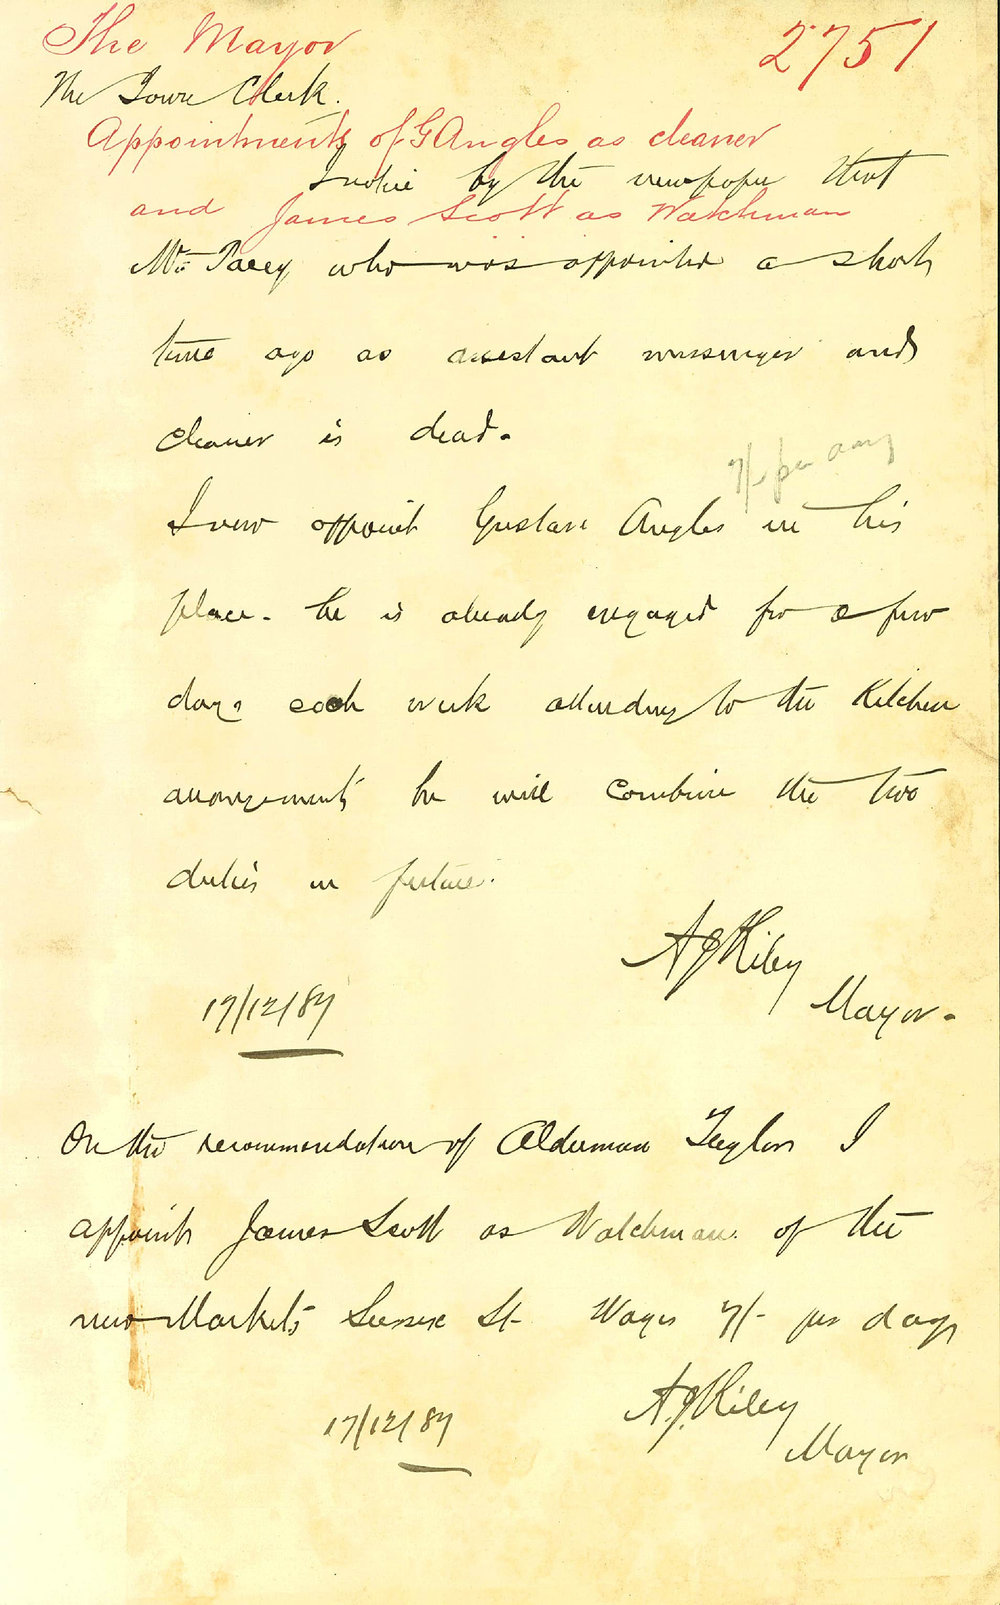 The Mayor
2751
The Town Clerk.
Appointments of G Angles as cleaner
I notice by the newspaper that
and James Scott as Watchman
Mr. who was appointed a short
time ago as assistant messenger and
cleaner is dead.
7/- per day
I now appoint Gustave Angles in his
place. he is already engaged for a few
days each week attending to the Kitchen
arrangements he will combine the two
duties in future.
A J Riley
Mayor.
17/12/87
On the recommendation of Alderman Taylor I
appoint James Scott as Watchman of the
new Markets Sussex St- Wages 7/- per day
A.J. Riley
17/12/87
Mayor